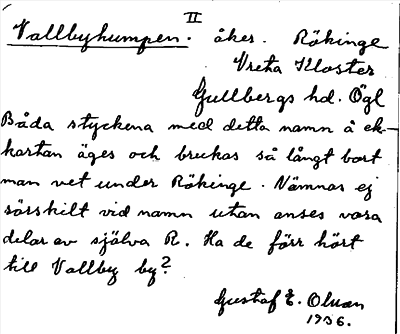 II
Vallbyhumpen. åker. Rökinge
Vreta Kloster
Gullbergs hd. Ögl
Båda styckena med detta namn å ek-
kartan äges och brukas så långt bort
man vet under Rökinge. Nämnas ej
särskilt vid namn utan anses vara
delar av själva R. Ha de förr hört
till Vallby by?
Gustaf E. Olsson
1936.